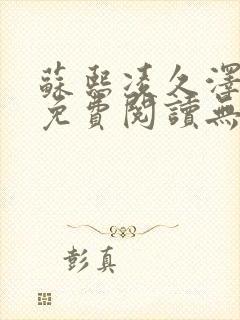 蘇熙凌久澤
免費閱讀無
彭真